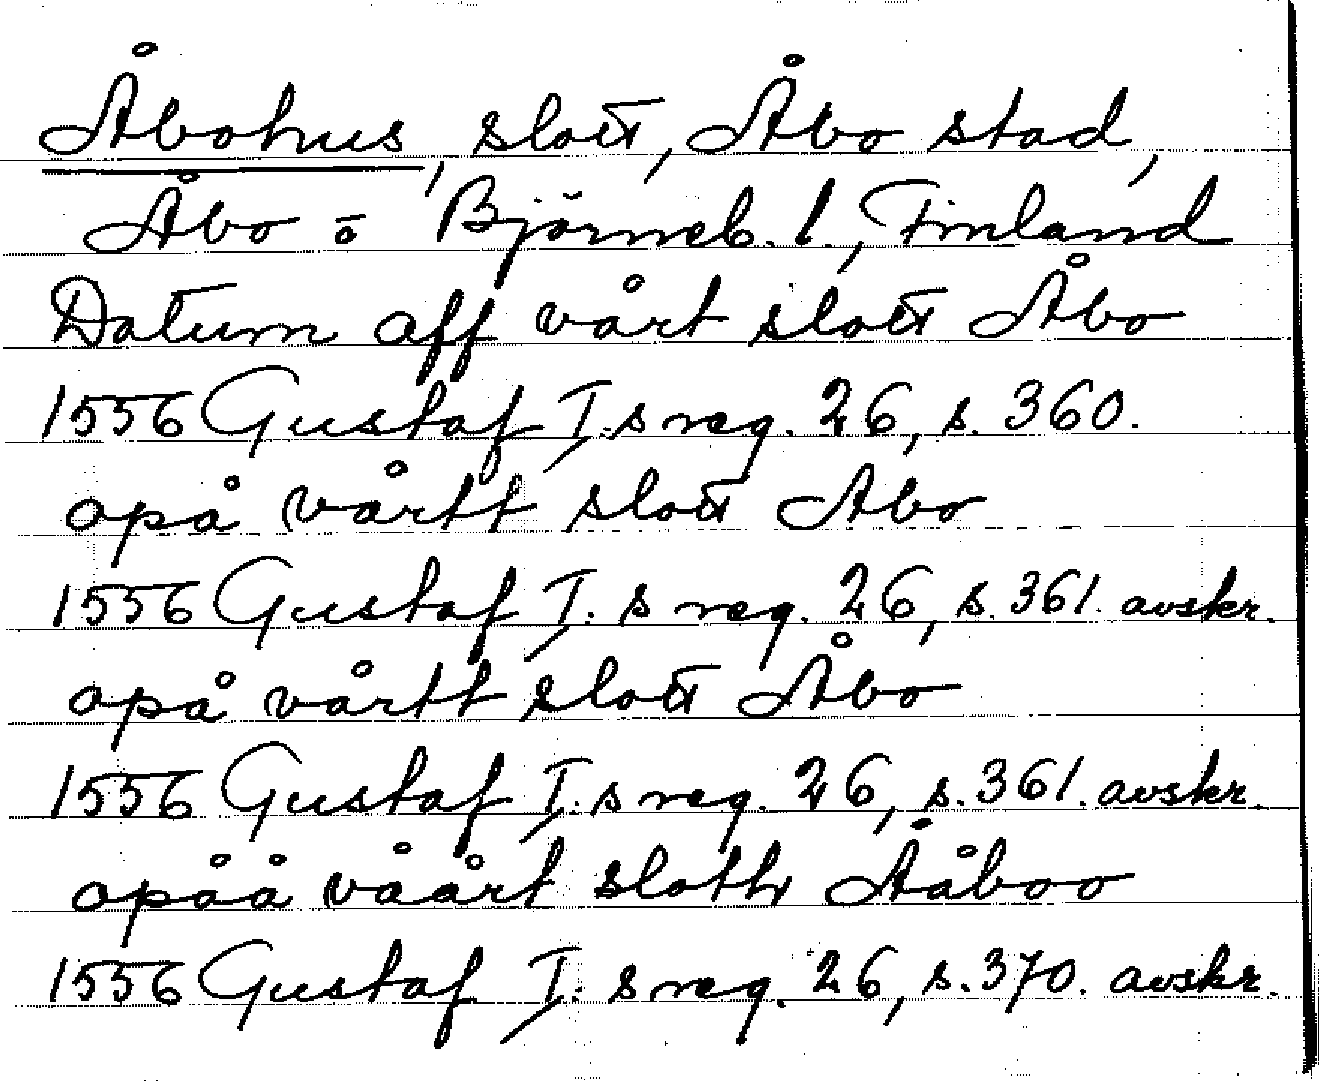 Åbohus, slott, Åbo stad,
Åbo o Björneb. l., Finland
Datum aff vårt slott Åbo
1556 Gustaf I:s reg. 26, s. 360.
opå vårtt slott Abo
1556 Gustaf I:s reg. 26, s. 361. avskr.
opå vårtt slott Åbo
1556 Gustaf I:s reg. 26, s. 361. avskr.
opåå våårt sloth Ååboo
1556 Gustaf I:s reg. 26, s. 370. avskr.